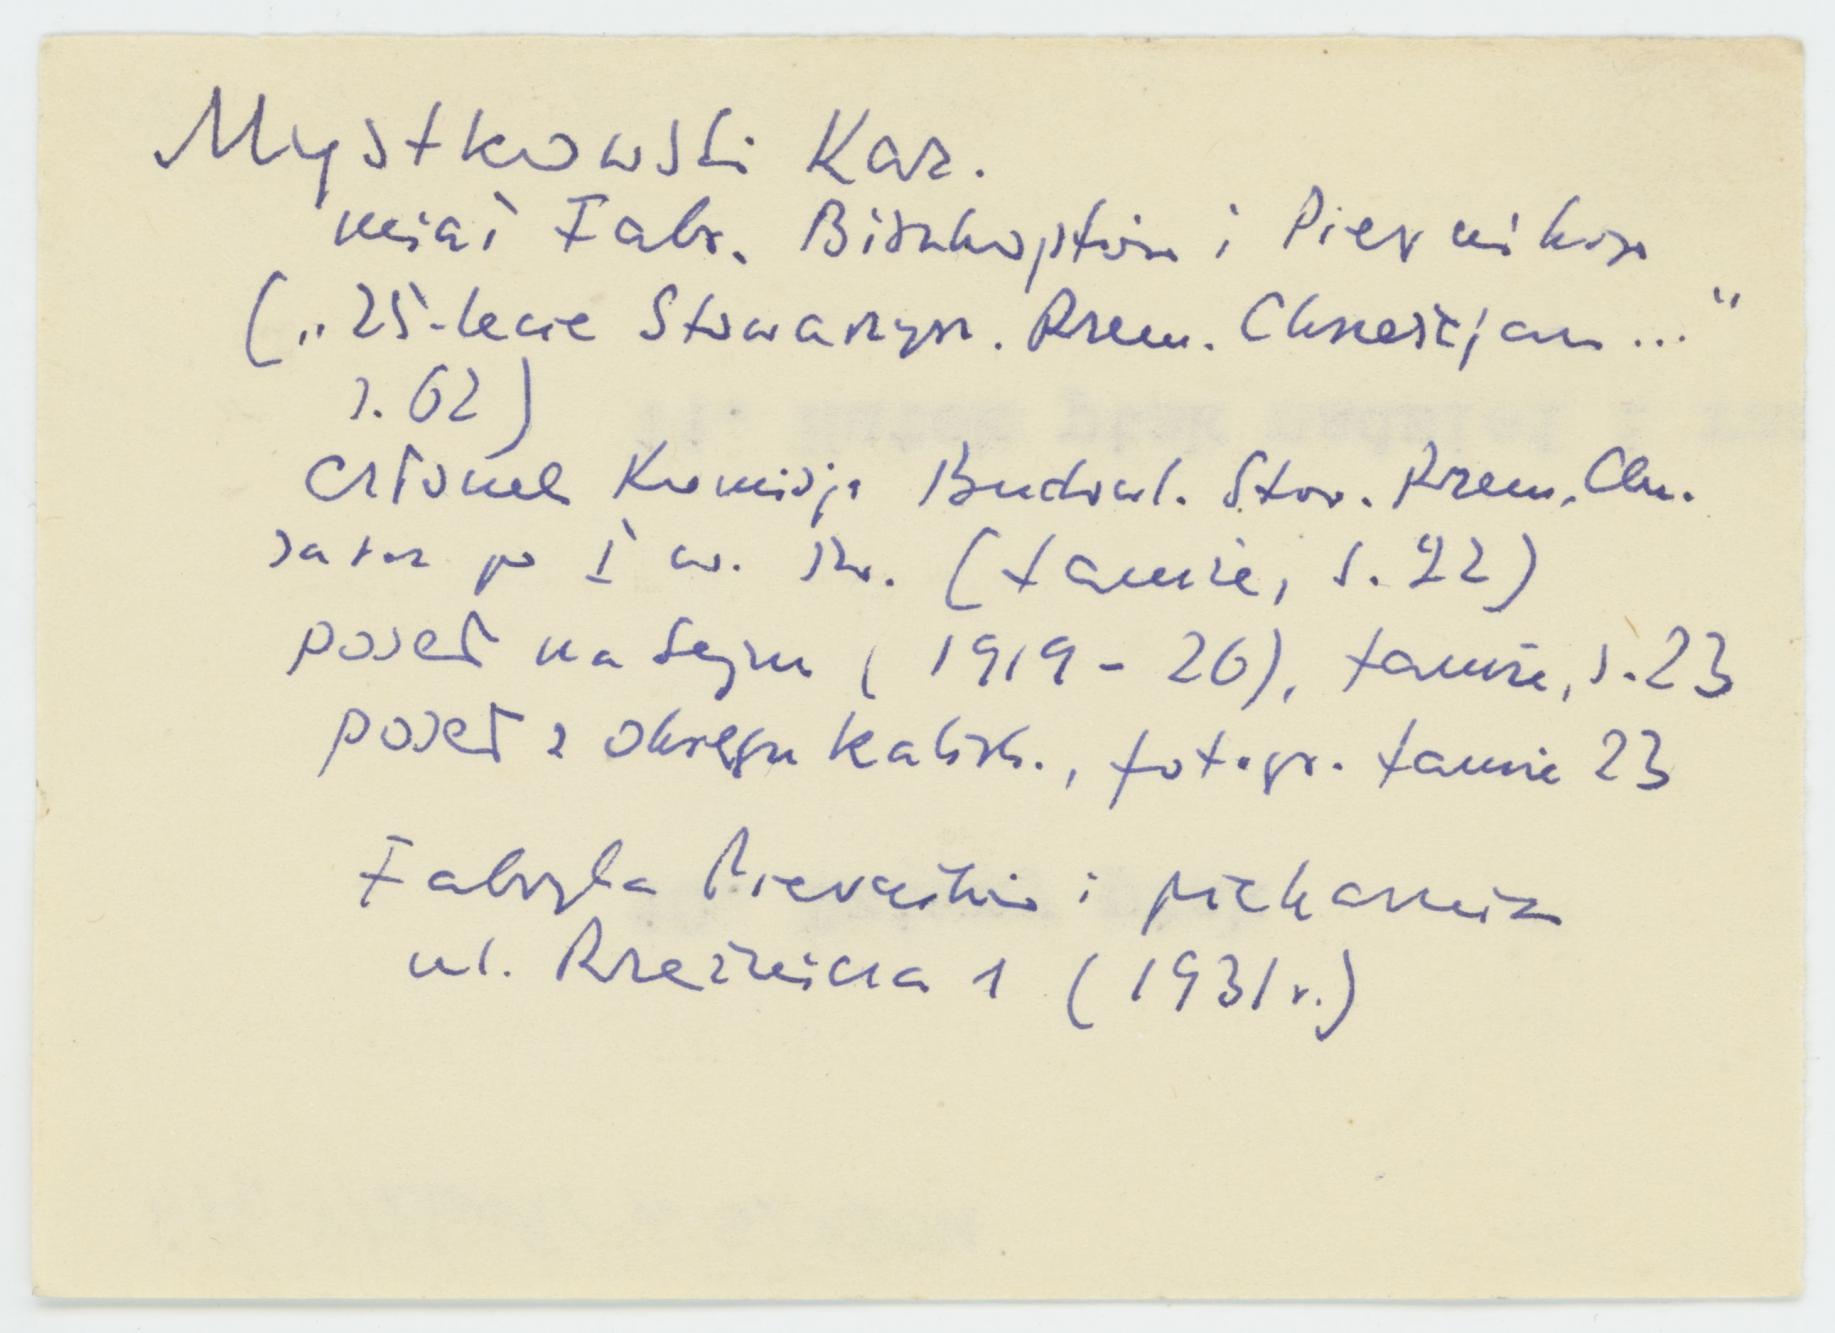 Mystkowski Kaz.
miał Fabr. Biszkoptów i Pierników
(„25-lecie Stowarzysz. Rzem. Chrześcijan..."
s. 62)
członek Komisji Budowl. Stow. Rzem. Chr.
zaraz po I w. św. (tamże, s. 22)
poseł na Sejm (1919-26), tamże, s. 23
poseł z okręgu kalisk., fotogr. tamże 23
Fabryka Pierników i piekarnia
ul. Rzeźnicza 1 (1931 r.)